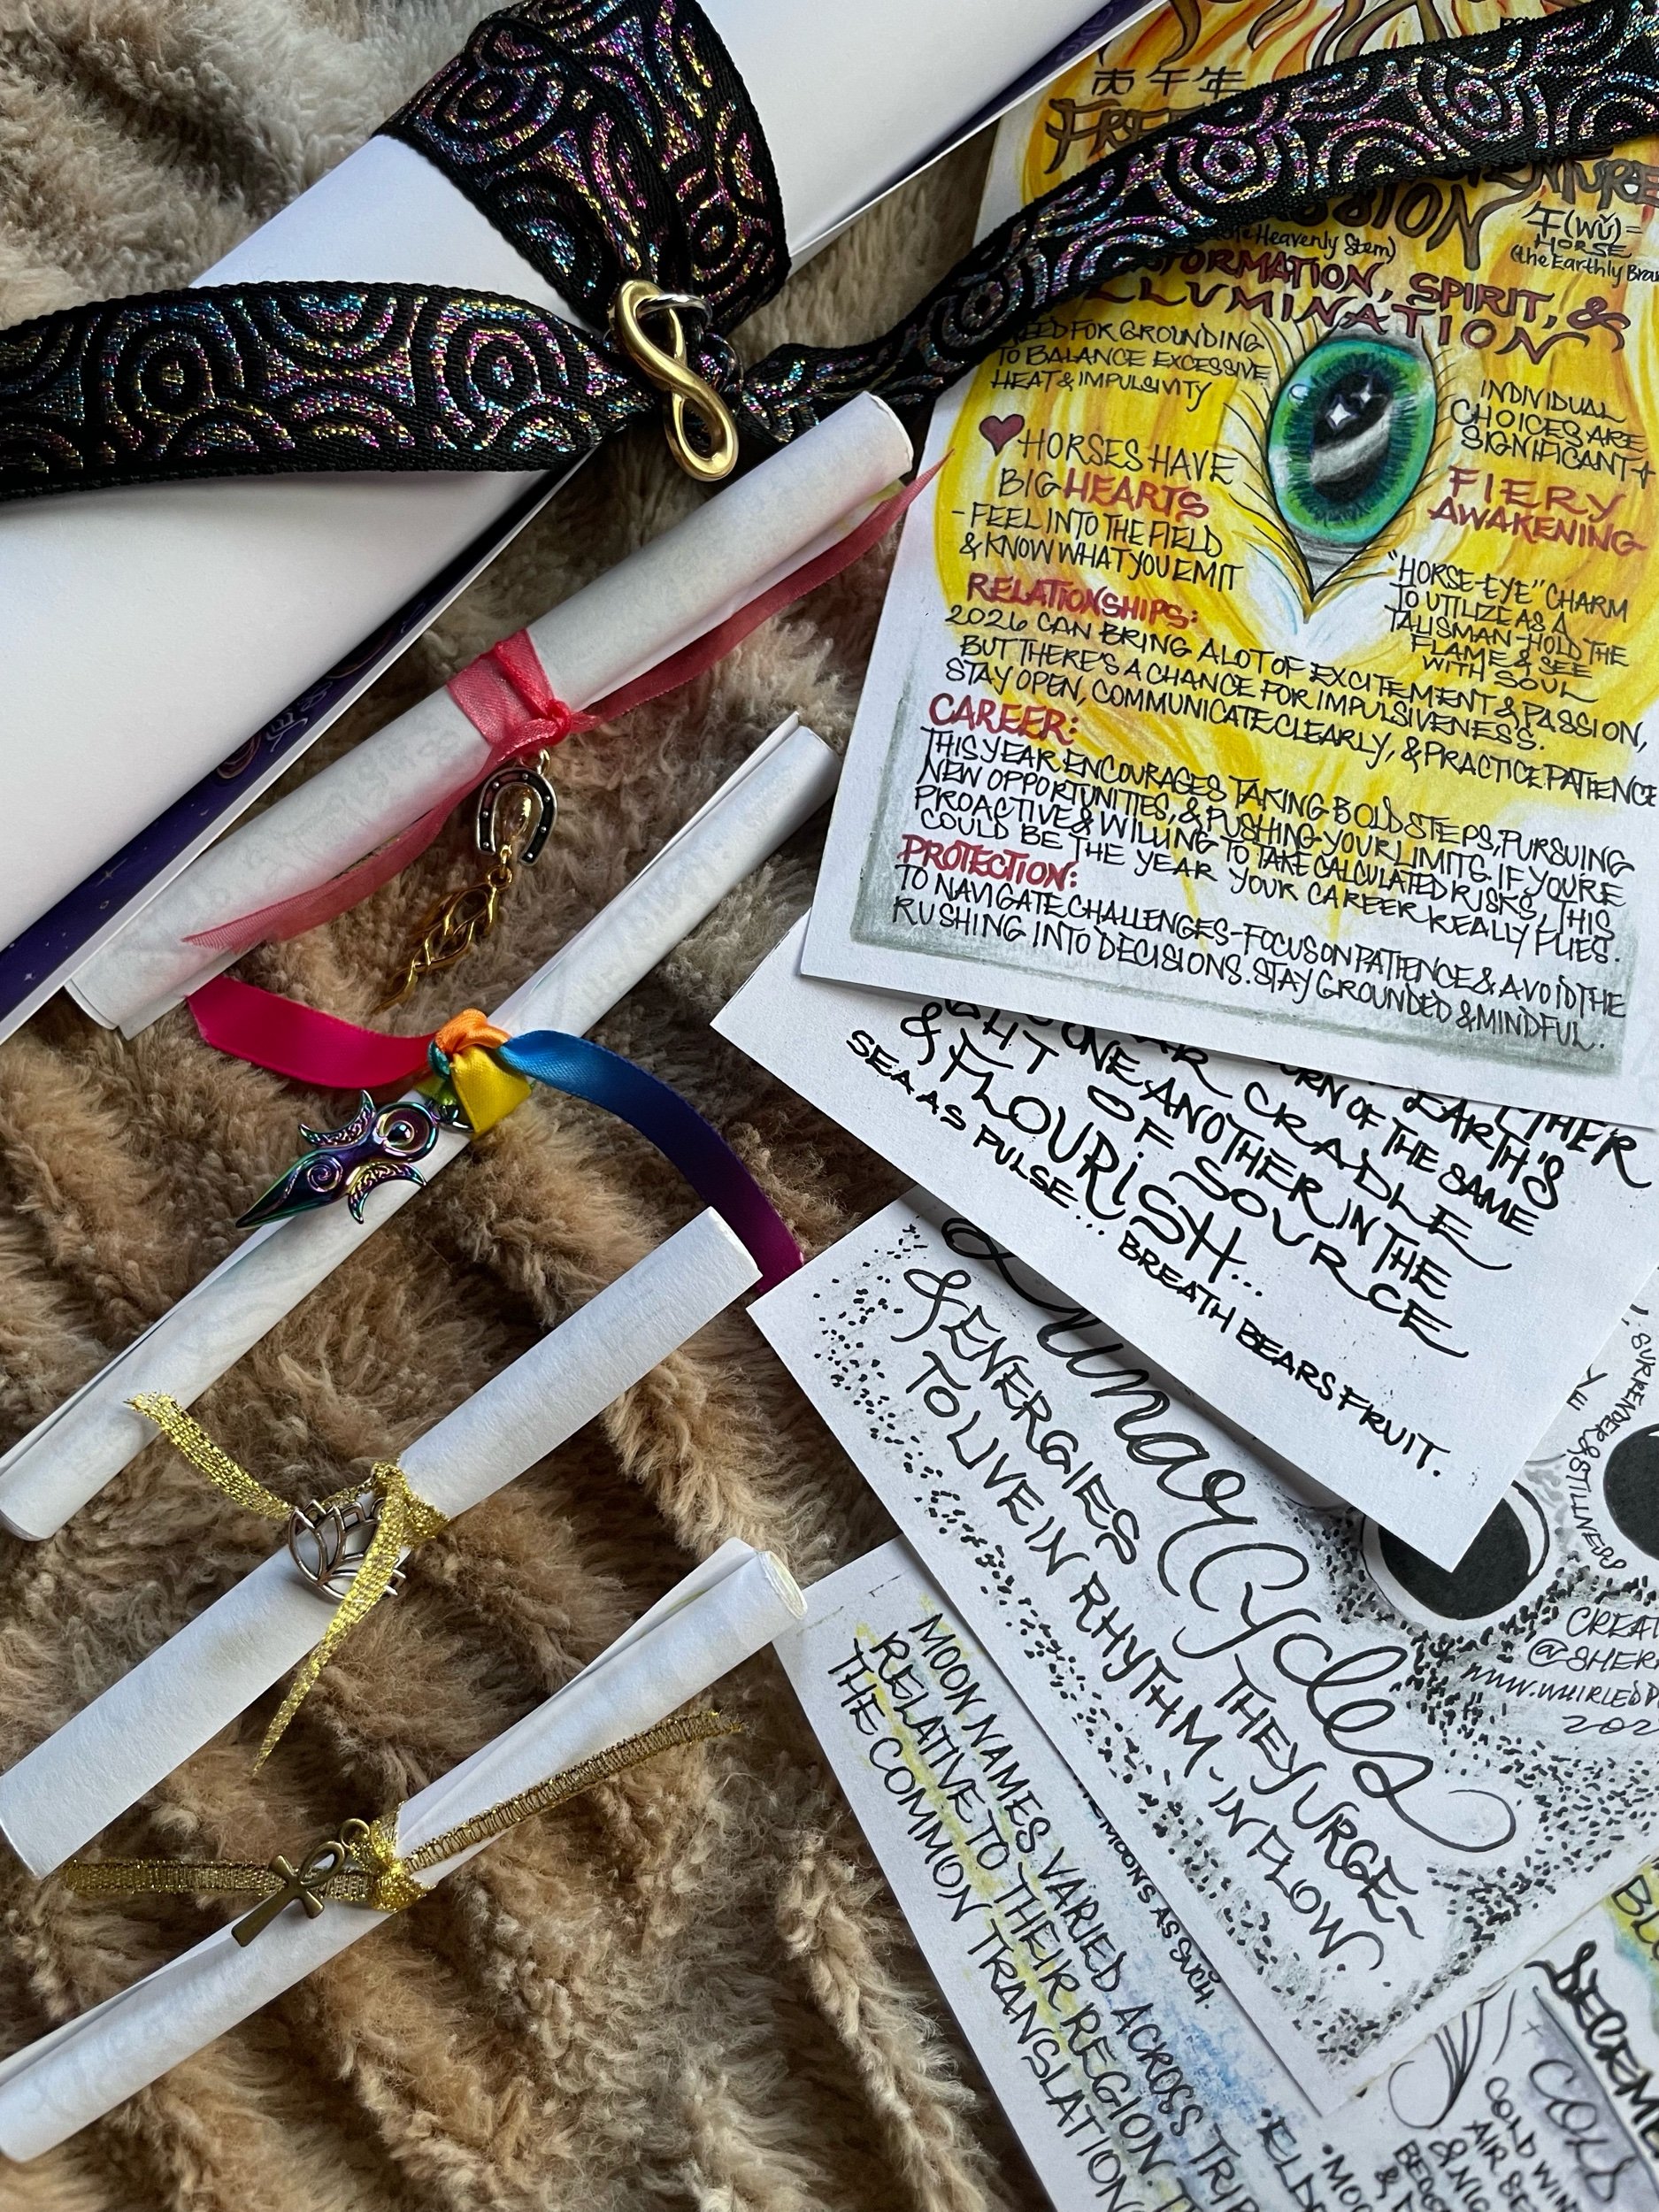 丙午年
午(WǓ)=
HORSE
Heavenly Stem)
(the Earthly
SPIRIT, &
ILLUMINATION
NEED FOR GROUNDING
TO BALANCE EXCESSIVE
HEAT & IMPULSIVITY
INDIVIDUAL
CHOICES ARE
SIGNIFICANT
FIERY
AWAKENING
HORSES HAVE
BIG HEARTS
- FEEL INTO THE FIELD
& KNOW WHAT YOU EMIT
"HORSE-EYE" CHARM
TO UTILIZE AS A
TALISMAN - HOLD THE
FLAME & SEE
WITH SOUL
RELATIONSHIPS:
2026 CAN BRING A LOT OF EXCITEMENT & PASSION,
BUT THERE'S A CHANCE FOR IMPULSIVENESS.
STAY OPEN, COMMUNICATE CLEARLY, & PRACTICE PATIENCE
CAREER:
THIS YEAR ENCOURAGES TAKING BOLD STEPS, PURSUING
NEW OPPORTUNITIES, & PUSHING YOUR LIMITS. IF YOU'RE
PROACTIVE & WILLING TO TAKE CALCULATED RISKS, THIS
COULD BE THE YEAR YOUR CAREER REALLY FLIES.
PROTECTION:
TO NAVIGATE CHALLENGES - FOCUS ON PATIENCE & AVOID THE
RUSHING INTO DECISIONS. STAY GROUNDED & MINDFUL.
OF THE SAME
EARTH'S
CRADLE
ONE ANOTHER IN THE
OF SOURCE
& FLOURISH...
SEA AS PULSE... BREATH BEARS FRUIT.
Lunar Cycles
& ENERGIES THEY URGE~
TO LIVE IN RHYTHM ~ IN FLOW
SURRENDER & STILLNESS
MOONS AS SUCH.
MOON NAMES VARIED ACROSS
RELATIVE TO THEIR REGION.
THE COMMON TRANSLATION
COLD
COLD